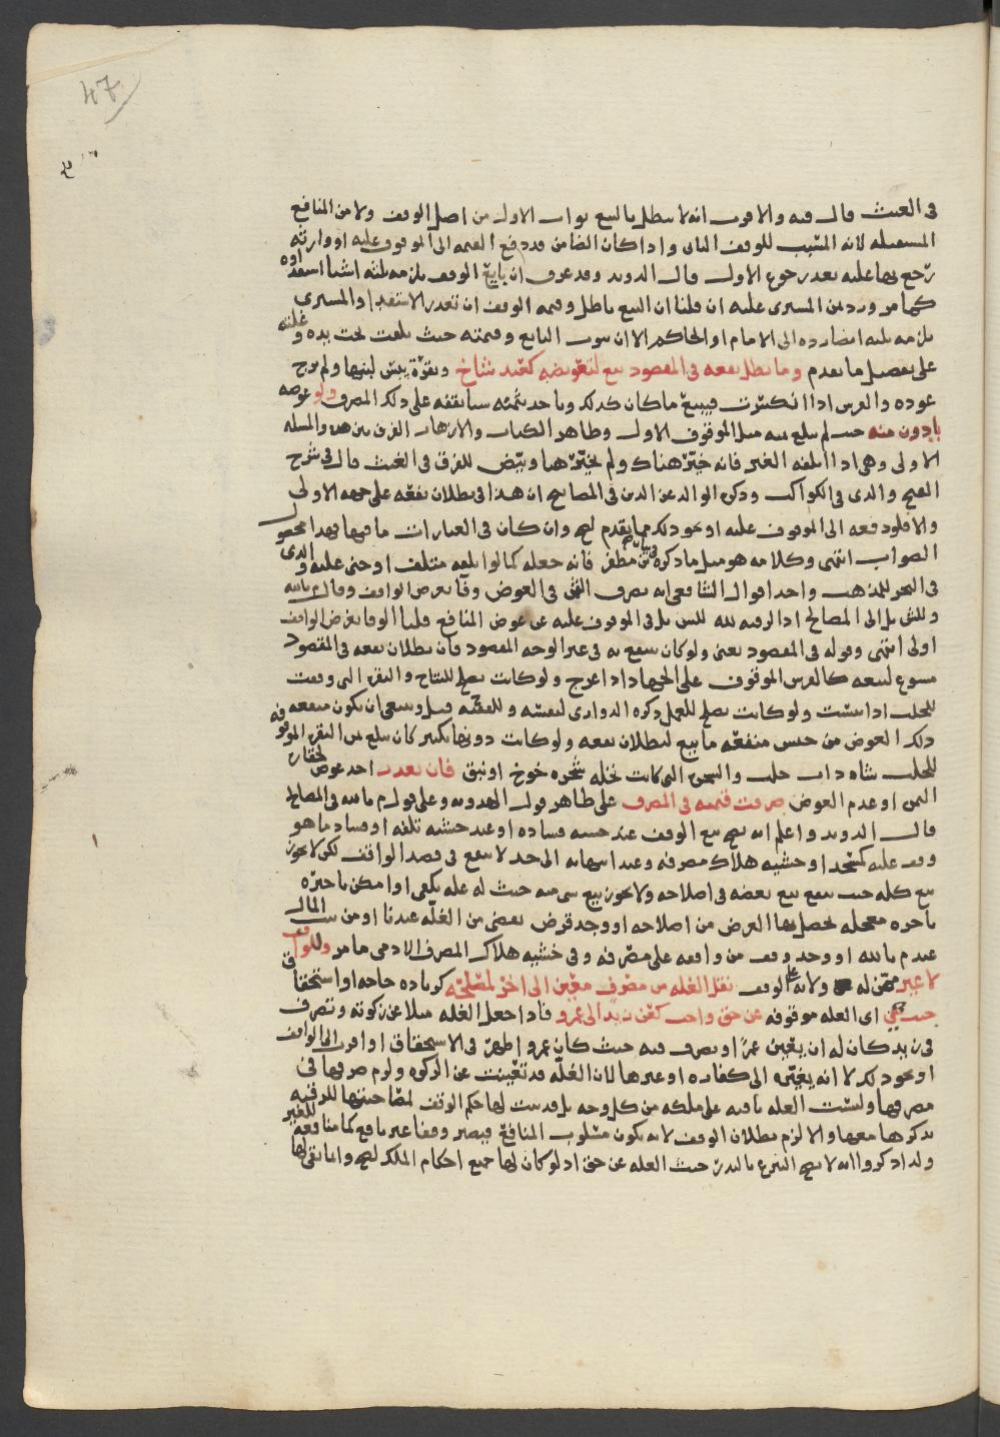 47
في الغيث قال فيه والاقرب انه لا يبطل بالبيع ثواب الاول من اصل الوقف ولا من المنافع
المستقبله لانه المسبب للوقف الثاني واذا كان الضامن قد دفع القيمه الى الموقوف عليه او وارثه
رجع بها عليه بعد رجوع الاول قال الدويد وقد عرف ان بايع الوقف يلزمه ثلثه اشيا استفداوه
كما مر ورد ثمن المشتري عليه ان قلنا ان البيع باطل وقيمه الوقف ان تعذر الاستفدا والمشتري
يلزمه ثلثه ايضا رده الى الامام او الحاكم الا ان يتوب البايع وقيمته حيث تلفت تحت يده وغلته
على تفصيل ما تقدم وما بطل نفعه في المقصود بيع لتعويضه كعبد شاخ وبقرة يبس لبنها ولم يرج
عوده والفرس اذا انكسرت فيبيع ما كان كذلك وياخذ بثمنه ما يقفه على ذلك المصرف ولو عوضه
بادون منه حيث لم يبلغ ثمنه مثل الموقوف الاول وظاهر الكتاب والازهار الفرق بين هذه والمسله
الاولى وهي اذا اتلفه الغير فانه خير هناك ولم يخير هنا وبيض للفرق في الغيث قال في شرح
الفتح والذي في الكواكب وذكره الوالد عز الدين في المصابيح ان هذا في بطلان نفعه على جهه الاولى
والا فلو دفعه الى الموقوف عليه او نحو ذلك مما تقدم لصح وان كان في العبارات ما فيها فهذا محصول
الصواب انتهى وكلامه هو مثل ما ذكره ابن مظفر فانه جعله كما لو اتلفه متلف او جنى عليه والذي
في البحر للمذهب واحد اقوال الشافعي انه يصرف الثمن في العوض وفا بغرض الواقف وقال م بالله
و للش بل الى المصالح اذ الرقبه لله للش بل في الموقوف عليه عن عوض المنافع قلنا الوفا بغرض الواقف
اولى انتهى وقوله في المقصود يعني ولو كان ينتفع به في غير الوجه المقصود فان بطلان نفعه في المقصود
مسوغ لبيعه كالفرس الموقوف على الجهاد اذا عرج ولو كانت تصلح للنتاج والبقره التي وقفت
للحلب اذا يبست ولو كانت تصلح للعمل ذكره الدواري لنفسه وللفقيه قيل وينبغي ان يكون منفعه
ذلك العوض من جنس منفعه ما بيع لبطلان نفعه ولو كانت دونها بكثير كان يبلغ ثمن البقره الموقوفه
للحلب شاه ذات حلب والثمن التي كانت نخله شجره خوخ او نبق فان تعذر اخذ عوض لحقاره
الثمن او عدم العوض صرفت قيمته في المصرف على ظاهر قول الهدويه وعلى قول م بالله في المصالح
قال الدويد واعلم انه يصح بيع الوقف عند خشيه فساده او عند خشيه تلفه او فساد ما هو
وقف عليه كمسجد او خشيه هلاك مصرفه وعند انتهائه الى حد لا ينتفع في قصد الواقف لكن لا يجوز
بيع كله حيث ينفع بيع بعضه في اصلاحه ولا يجوز بيع شي منه حيث له غله تكفي او امكن تاجيره
باجره معجله يحصل بها الغرض من اصلاحه او وجد قرض يقضى من الغله عندنا او من بيت المال
عند م بالله او وجد وقف من واقفه على مصرفه وفي خشيه هلاك المصرف الادمي ما مر وللواقف
لا غير ممن له ولايه على الوقف نقل الغله من مصرف معين الى اخر لمصلحه كزياده حاجه او استحقاق
حيث هي اي الغله موقوفه عن حق واجب كعن زيد الى عمرو فاذا جعل الغله مثلا عن زكوته وتصرف
في زيد كان له ان يعين عمرا او يصرف فيه حيث كان عمرو اظهر في الاستحقاق او اقرب الى الواقف
او نحو ذلك لا انه يغيره الى كفاره او غيرها لان الغله قد تعينت عن الزكوه ولزم صرفها في
مصرفها وليست الغله باقيه على ملكه من كل وجه بل قد ثبت لها حكم الوقف لمصاحبتها للرقبه
بذكرها معها والا لزم بطلان الوقف لانه يكون مسلوب المنافع فيصير وقفا غير نافع كما منافعه للغير
ولذا ذكروا انه لا يصح التبرع بالبذر حيث الغله عن حق اذ لو كان لها جميع احكام الملك لصح وانما بقي لها